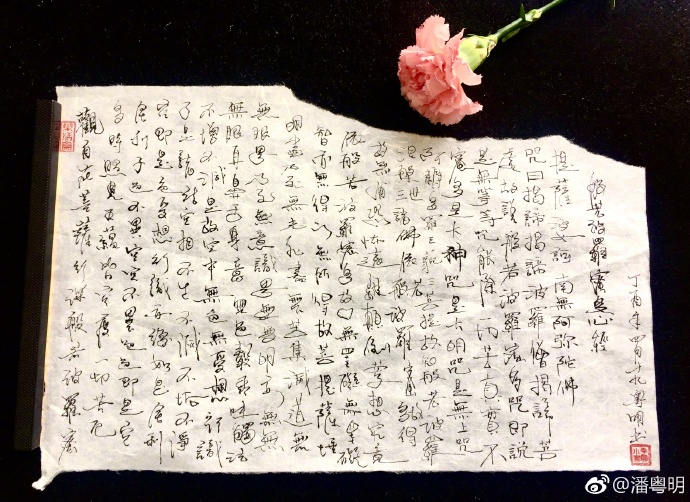 觀自在菩薩行深般若波羅蜜
多時照見五蘊皆空度一切苦厄
舍利子色不異空空不異色色即是空
空即是色受想行識亦復如是舍利
子是諸法空相不生不滅不垢不淨
不增不減是故空中無色無受想行識
無眼耳鼻舌身意無色聲香味觸法
無眼界乃至無意識界無無明亦無無
明盡乃至無老死盡無苦集滅道無
智亦無得以無所得故菩提薩埵
依般若波羅蜜多故心無罣礙無罣礙
故無有恐怖遠離顛倒夢想究竟
涅槃三世諸佛依般若波羅蜜多故得
阿耨多羅三藐三菩提故知般若波羅
蜜多是大神咒是大明咒是無上咒
是無等等咒能除一切苦真實不
虛故說般若波羅蜜多咒即說
咒曰揭諦揭諦波羅僧揭諦菩
提薩婆訶 南無阿彌陀佛
般若波羅蜜多心經
丁酉年四月十九粤明书
@潘粤明